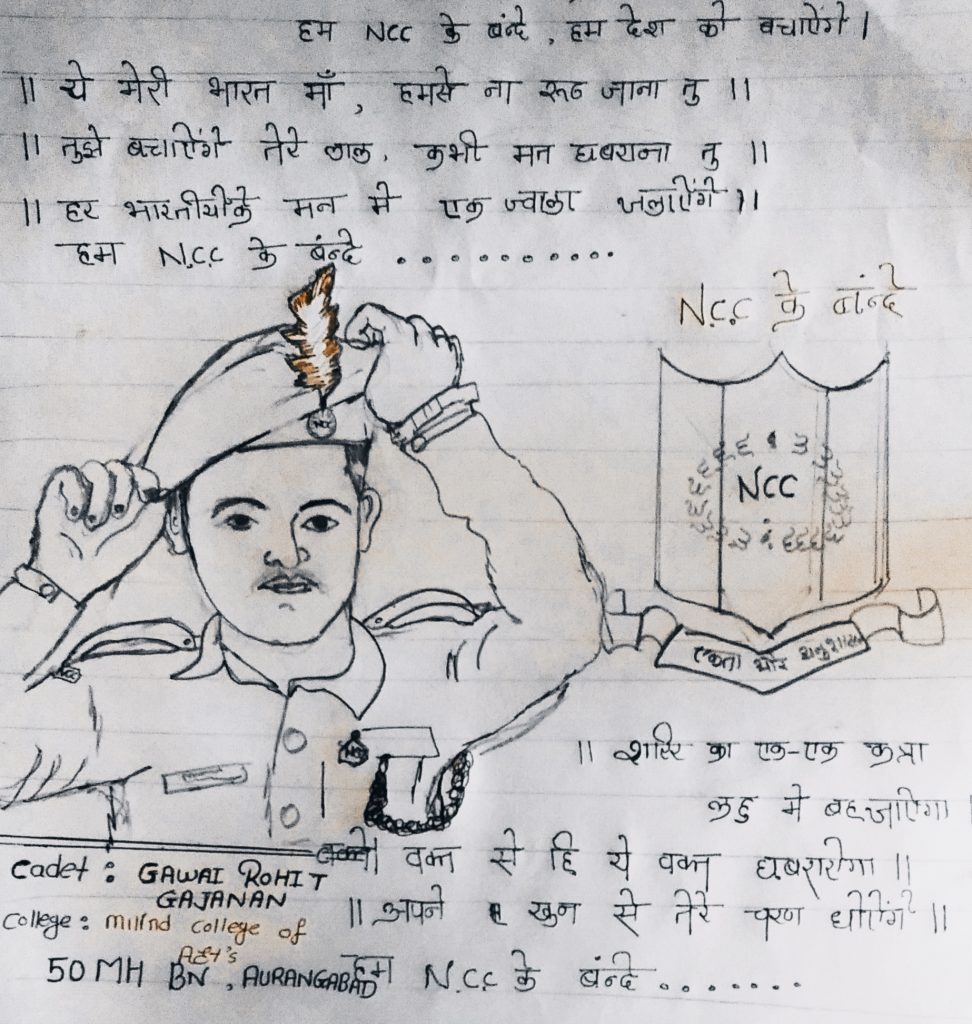 हम NCC के बंन्दे , हम देश को बचाऐंगे ।
॥ ये मेरी भारत माँ , हमसे ना रूठ जाना तु ॥
॥ तुझे बचाऐंगे तेरे लाल, कभी मत घबराना तु ॥
॥ हर भारतीयोंके मन मे एक ज्वाला जलाऐंगे ॥
हम N.C.C के बंन्दे ...........
N.C.C के बांन्दे
NCC
NCC
एकता और अनुशासन
NCC
NCC
॥ शरिर का एक-एक कत्रा
लहु मे बहजाऐगा ।
वक्त से हि ये वक्त घबराऐगा ॥
॥ अपने खुन से तेरे चरण धोऐंगे ॥
हम N.C.C के बंन्दे ........
Cadet : GAWAI ROHIT
GAJANAN
College : Milind college of
Art's
50 MH BN , AURANGABAD